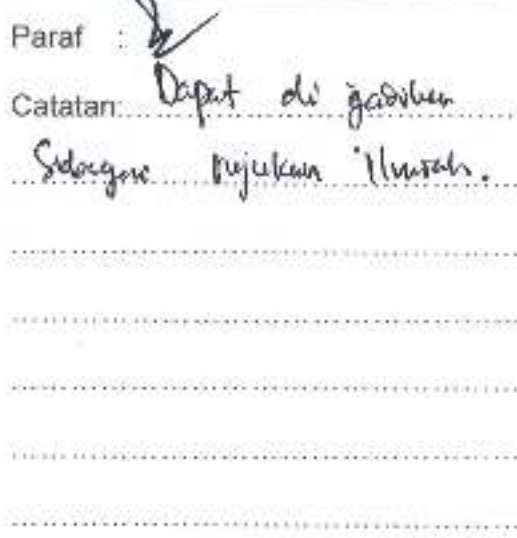 Paraf :
Catatan: Dapat di jadikan
Sebagai rujukan Ilmiah.